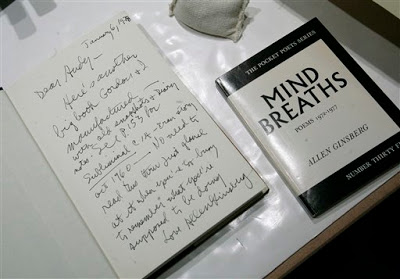 January 6, 1978
Dear Andy —
Here's another
big book Gordon & I
manufactured —
with old snapshots — Diary
notes. See p. 153 for
Subliminal C.I.A.
Oct 1960 — No need to
read this thru just glance
at it when you're
to remember what you're
supposed to be doing
Love Allen Ginsberg
THE POCKET POETS SERIES
MIND
BREATHS
POEMS 1972-1977
ALLEN GINSBERG
NUMBER THIRTY FI